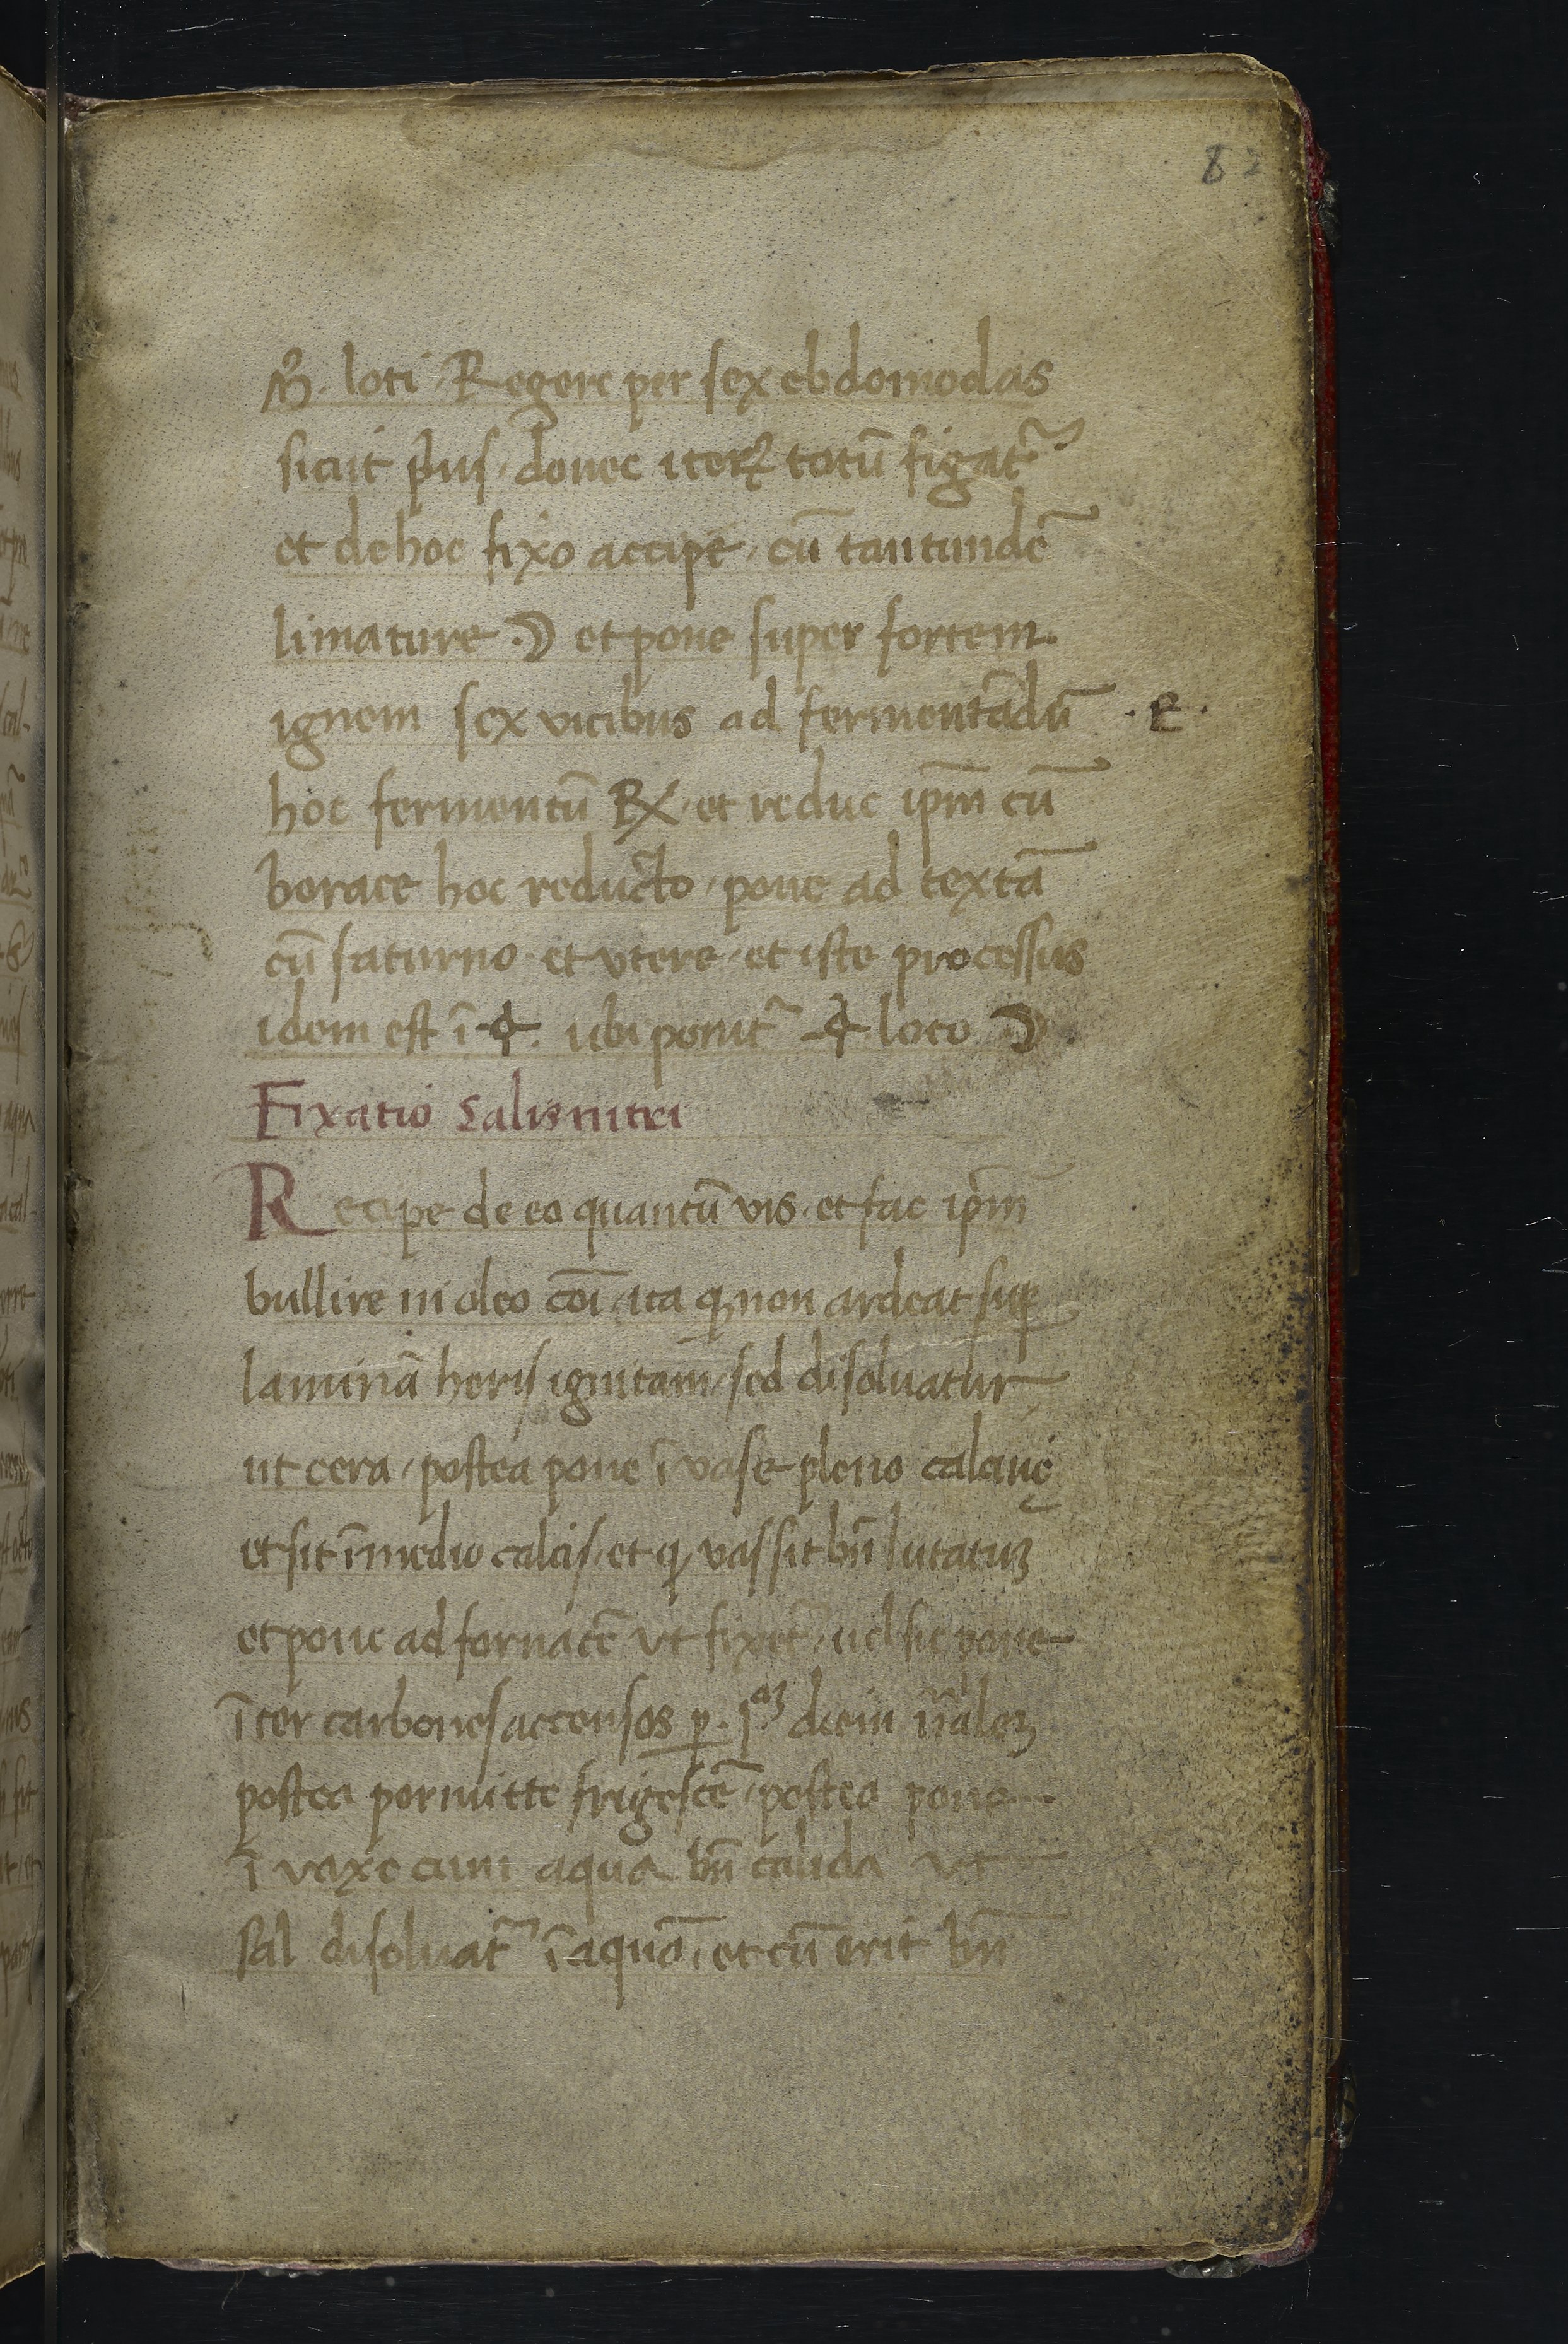 82
loti Regere per sex ebdomodas
sicut p̄us, donec iteꝝ totū figat᷑
et de hoc fixo accipe, cū tantundē
limature .☽ et pone super fortem
ignem sex vicibus ad fermentādū .E.
hoc fermentū RX, et reduc ip̄m cū
borace hoc reducto, pone ad textā
cū saturno et vtere, et iste processus
idem est ī ubi ponit᷑ loco ☽.
Fixatio salis nitri
Recipe de eo quantū vis, et fac ip̄m
bullire in oleo cōi, ita ꝙ non ardeat suꝑ
laminā heris ignitam, sed disoluatur
ut cera, postea pone ī vase pleno calcinę
et sit ī medio calcis, et ꝙ vas sit bn̄ lutatuꝫ
et pone ad fornacē vt fixet᷑, uel sic pone
īter carbones accensos ꝑ .1.aꝫ diem n̄aleꝫ
postea permitte frigescē, postea pone...
ī vaxe cum aqua bn̄ calida vt
sal disoluat᷑ ī aquā, et cū erit bn̄